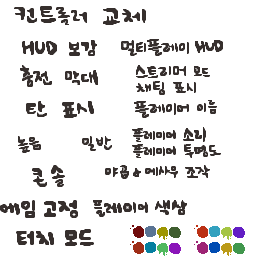 컨트롤러 교체
HUD 보감 멀티플레이 HUD
충전 막대 스트리머 모드
채팅 표시
탄 표시 플레이어 이름
높음 일반 플레이어 소리
플레이어 투명도
콘솔 야곱 & 에사우 조작
에임 고정 플레이어 색상
터치 모드